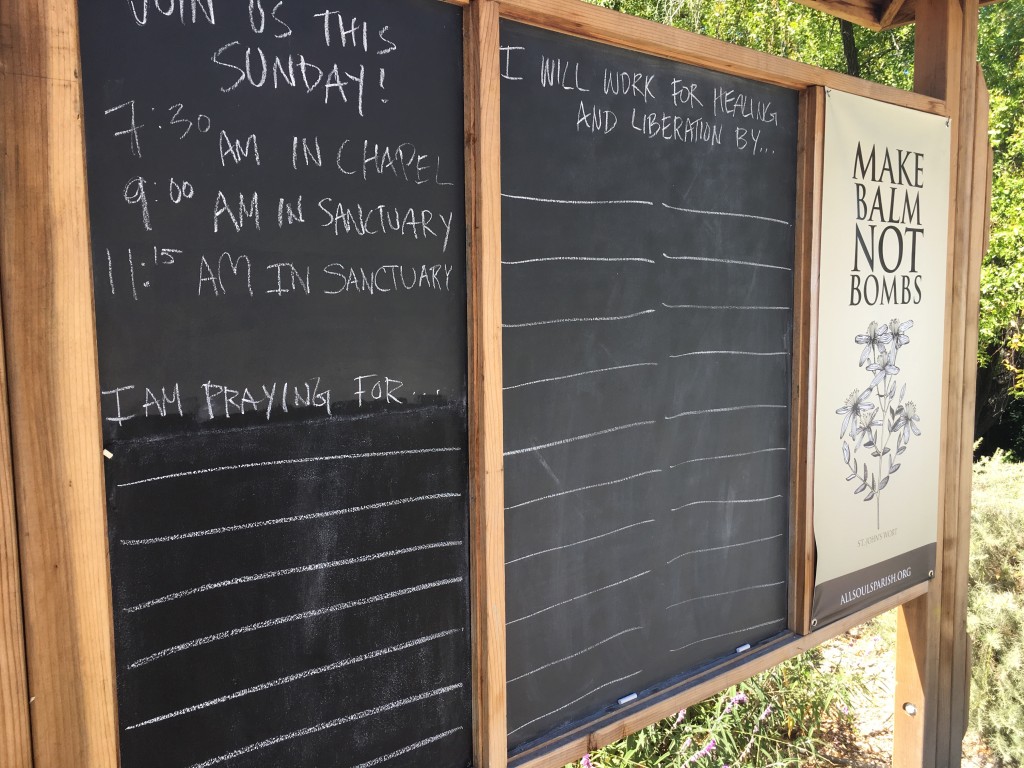 JOIN US THIS
SUNDAY!
7:30 AM IN CHAPEL
9:00 AM IN SANCTUARY
11:15 AM IN SANCTUARY
I AM PRAYING FOR...
I WILL WORK FOR HEALING
AND LIBERATION BY...
MAKE
BALM
NOT
BOMBS
ST. JOHN'S WORT
ALLSOULSPARISH.ORG